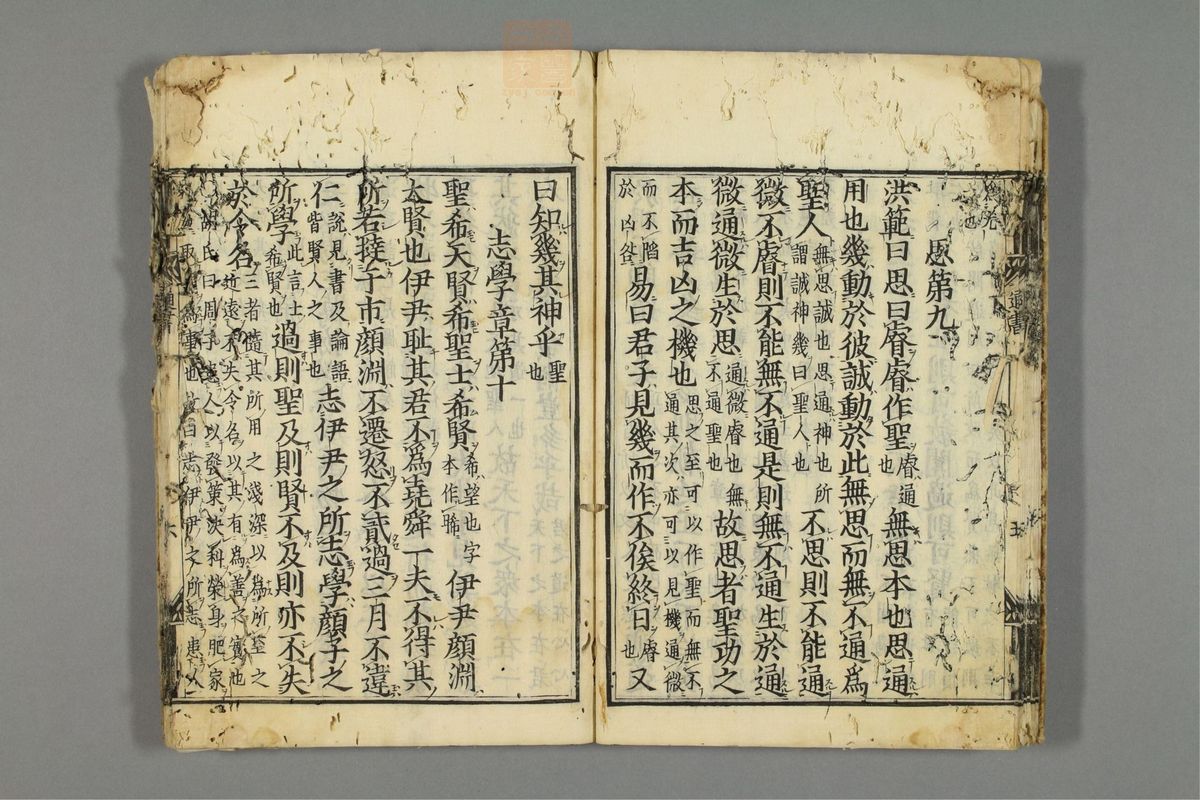 思第九
洪範曰思曰睿睿作聖睿通也無思本也思通
用也幾動於彼誠動於此無思而無不通為
聖人無思誠也思通神也所謂誠神幾曰聖人也不思則不能通
微不睿則不能無不通是則無不通生於通
微通微生於思通微睿也無不通聖也故思者聖功之
本而吉凶之機也思之至可以作聖而無不通其次亦可以見機通微
而不陷於凶咎易曰君子見幾而作不俟終日睿也又
曰知幾其神乎聖也
志學章第十
聖希天賢希聖士希賢希望也字本作睎伊尹顏淵
大賢也伊尹耻其君不爲堯舜一夫不得其
所若撻于市顏淵不遷怒不貳過三月不違
仁說見書及論語皆賢人之事也志伊尹之所志學顏子之
所學此言士希賢也過則聖及則賢不及則亦不失
於令名三者隨其所用之淺深以為所至之近遠不失令名以其有為善之實也
胡氏曰周子患人以發策決科榮身肥家
也故曰志伊尹之所志患人
通書